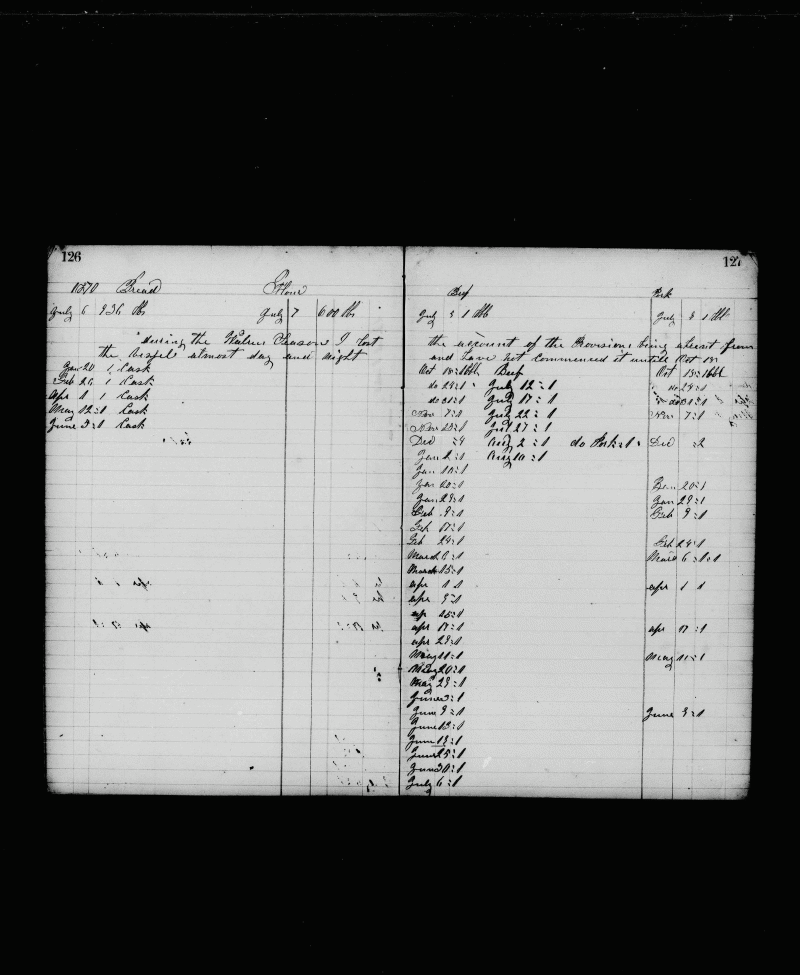 126
1870 Bread Flour
July 6 936 lbs July 7 600 lbs
during the Walrus Season I lost
the almost day and night
Jan 20 1 Cask
Feb 26 1 Cask
Apr 1 1 Cask
May 12 = 1 Cask
June 3 = 1 Cask
127
Beef Pork
July 3 1 bbl July 3 1 bbl
the account of the Provisions being absent from
and have not commenced it untill Oct 18
Oct 18 = 1 bbl Beef Oct 18 = 1 bbl
do 24 = 1 July 12 = 1 do 24 = 1
do 31 = 1 July 17 = 1 do 31
Nov 7 = 1 July 22 = 1 Nov 7 = 1
Nov 23 = 1 Jul 27 = 1
Dec = 4 Aug 2 = 1 do Pork = 1 Dec = 2
Jan 2 = 1 Aug 10 = 1
Jan 10 = 1
Jan 20 = 1 Jan 20 = 1
Jan 29 = 1 Jan 29 = 1
Feb 9 = 1 Feb 9 = 1
Feb 17 = 1
Feb 24 = 1 Feb 24 = 1
March 6 = 1 March 6 = 1
March 15 = 1
apr 1 1 apr 1 1
apr 9 = 1
ap 15 = 1
apr 17 = 1 apr 17 = 1
apr 29 = 1
May 11 = 1 May 11 = 1
May 20 = 1
May 29 = 1
June 3 = 1
June 9 = 1 June 9 = 1
June 13 = 1
June 19 = 1
June 25 = 1
June 30 = 1
July 6 = 1